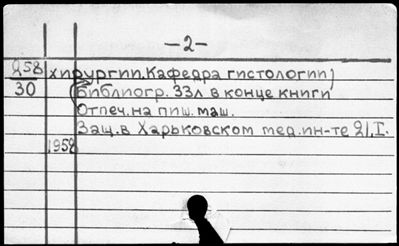 -2-
258 хирургии. Кафедра гистологии)
30 (Библиогр. 33л в конце книги
Отпеч. на пиш. маш.
Защ. в Харьковском мед. ин-те 21.I.
1958